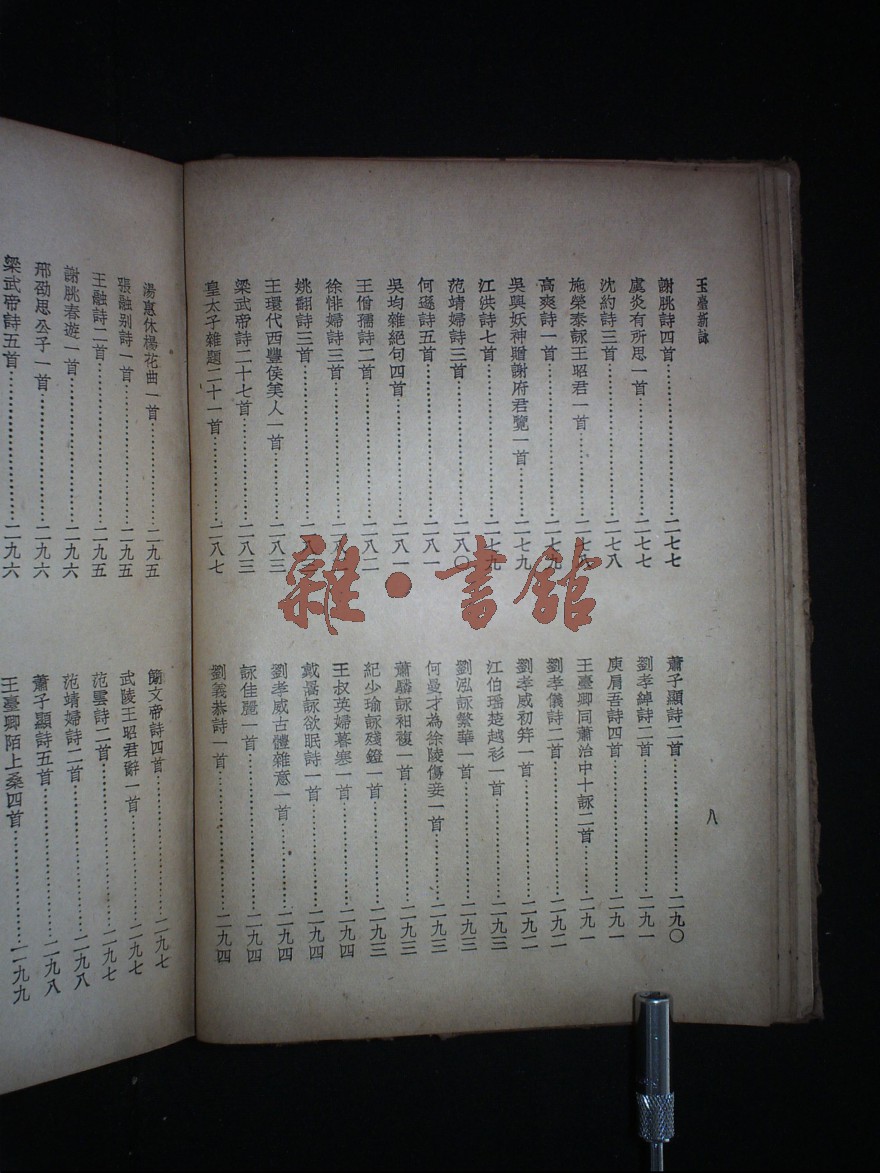 玉臺新詠
謝朓詩四首…………二七七
虞炎有所思一首…………二七七
沈約詩三首…………二七八
施榮泰詠王昭君一首…………二七八
高爽詩一首…………二七九
吳興妖神贈謝府君覽一首…………二七九
江洪詩七首…………二七九
范靖婦詩三首…………二八〇
何遜詩五首…………二八一
吳均雜絕句四首…………二八一
王僧孺詩二首…………二八二
徐悱婦詩三首…………二八
姚翻詩三首…………二八
王環代西豐侯美人一首…………二八三
梁武帝詩二十七首…………二八三
皇太子雜題二十一首…………二八七
蕭子顯詩二首…………二九〇
劉孝綽詩二首…………二九一
庾肩吾詩四首…………二九一
王臺卿同蕭治中十詠二首…………二九一
劉孝儀詩二首…………二九二
劉孝威初笄一首…………二九二
江伯瑤楚越衫一首…………二九三
劉泓詠繁華一首…………二九三
何曼才為徐陵傷妾一首…………二九三
蕭驎詠衵複一首…………二九三
紀少瑜詠殘鐙一首…………二九三
王叔英婦暮寒一首…………二九四
戴暠詠欲眠詩一首…………二九四
劉孝威古體雜意一首…………二九四
詠佳麗一首…………二九四
劉義恭詩一首…………二九四
八
湯惠休楊花曲一首…………二九五
張融別詩一首…………二九五
王融詩二首…………二九五
謝朓春遊一首…………二九六
邢劭思公子一首…………二九六
梁武帝詩五首…………二九六
簡文帝詩四首…………二九七
武陵王昭君辭一首…………二九七
范雲詩二首…………二九七
范靖婦詩二首…………二九八
蕭子顯詩五首…………二九八
王臺卿陌上桑四首…………二九九
雜·書館